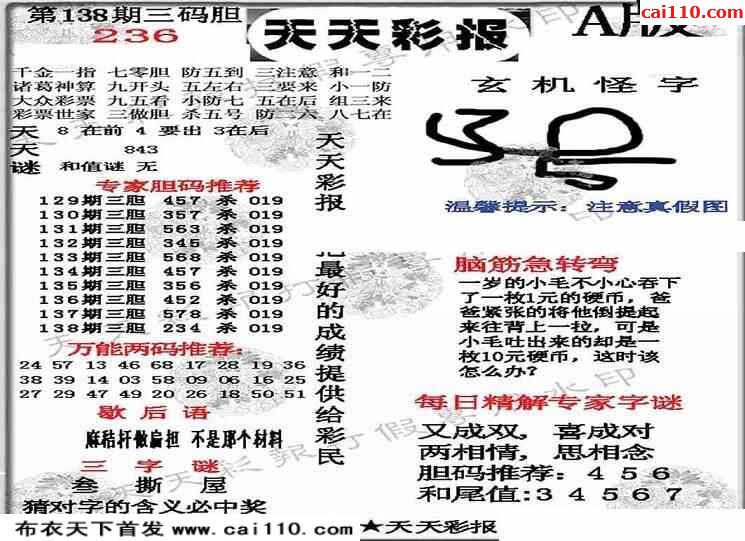 第138期三码胆
236
天天彩报
A版
cai110.com
千金一指 七零胆 防五到 三注意 和一二
诸葛神算 九开头 五左右 三要来 小一防
大众彩票 九五看 小防七 五在后 组三来
彩票世家 三做胆 杀五号 防二六 八七在
天 8 在前 4 要出 3在后
天 843
谜 和值谜 无
专家胆码推荐
129期三胆 457 杀 019
130期三胆 357 杀 019
131期三胆 563 杀 019
132期三胆 345 杀 019
133期三胆 568 杀 019
134期三胆 457 杀 019
135期三胆 356 杀 019
136期三胆 452 杀 019
137期三胆 578 杀 019
138期三胆 234 杀 019
万能两码推荐:
24 57 13 46 68 17 28 19 36
38 39 14 03 58 09 06 16 25
27 29 47 49 20 26 18 50 51
歇后语
麻秸杆做扁担 不是那个材料
三字谜
叁 撕 屋
猜对字的含义必中奖
天天彩报
把最好的成绩提供给彩民
玄机怪字
温馨提示: 注意真假图
脑筋急转弯
一岁的小毛不小心吞下
了一枚1元的硬币，爸
爸紧张的将他倒提起
来往背上一拉，可是
小毛吐出来的却是一
枚10元硬币，这时该
怎么办?
每日精解专家字谜
又成双，喜成对
两相情，思相念
胆码推荐: 4 5 6
和尾值:3 4 5 6 7
布衣天下首发 www.cai110.com ★天天彩报